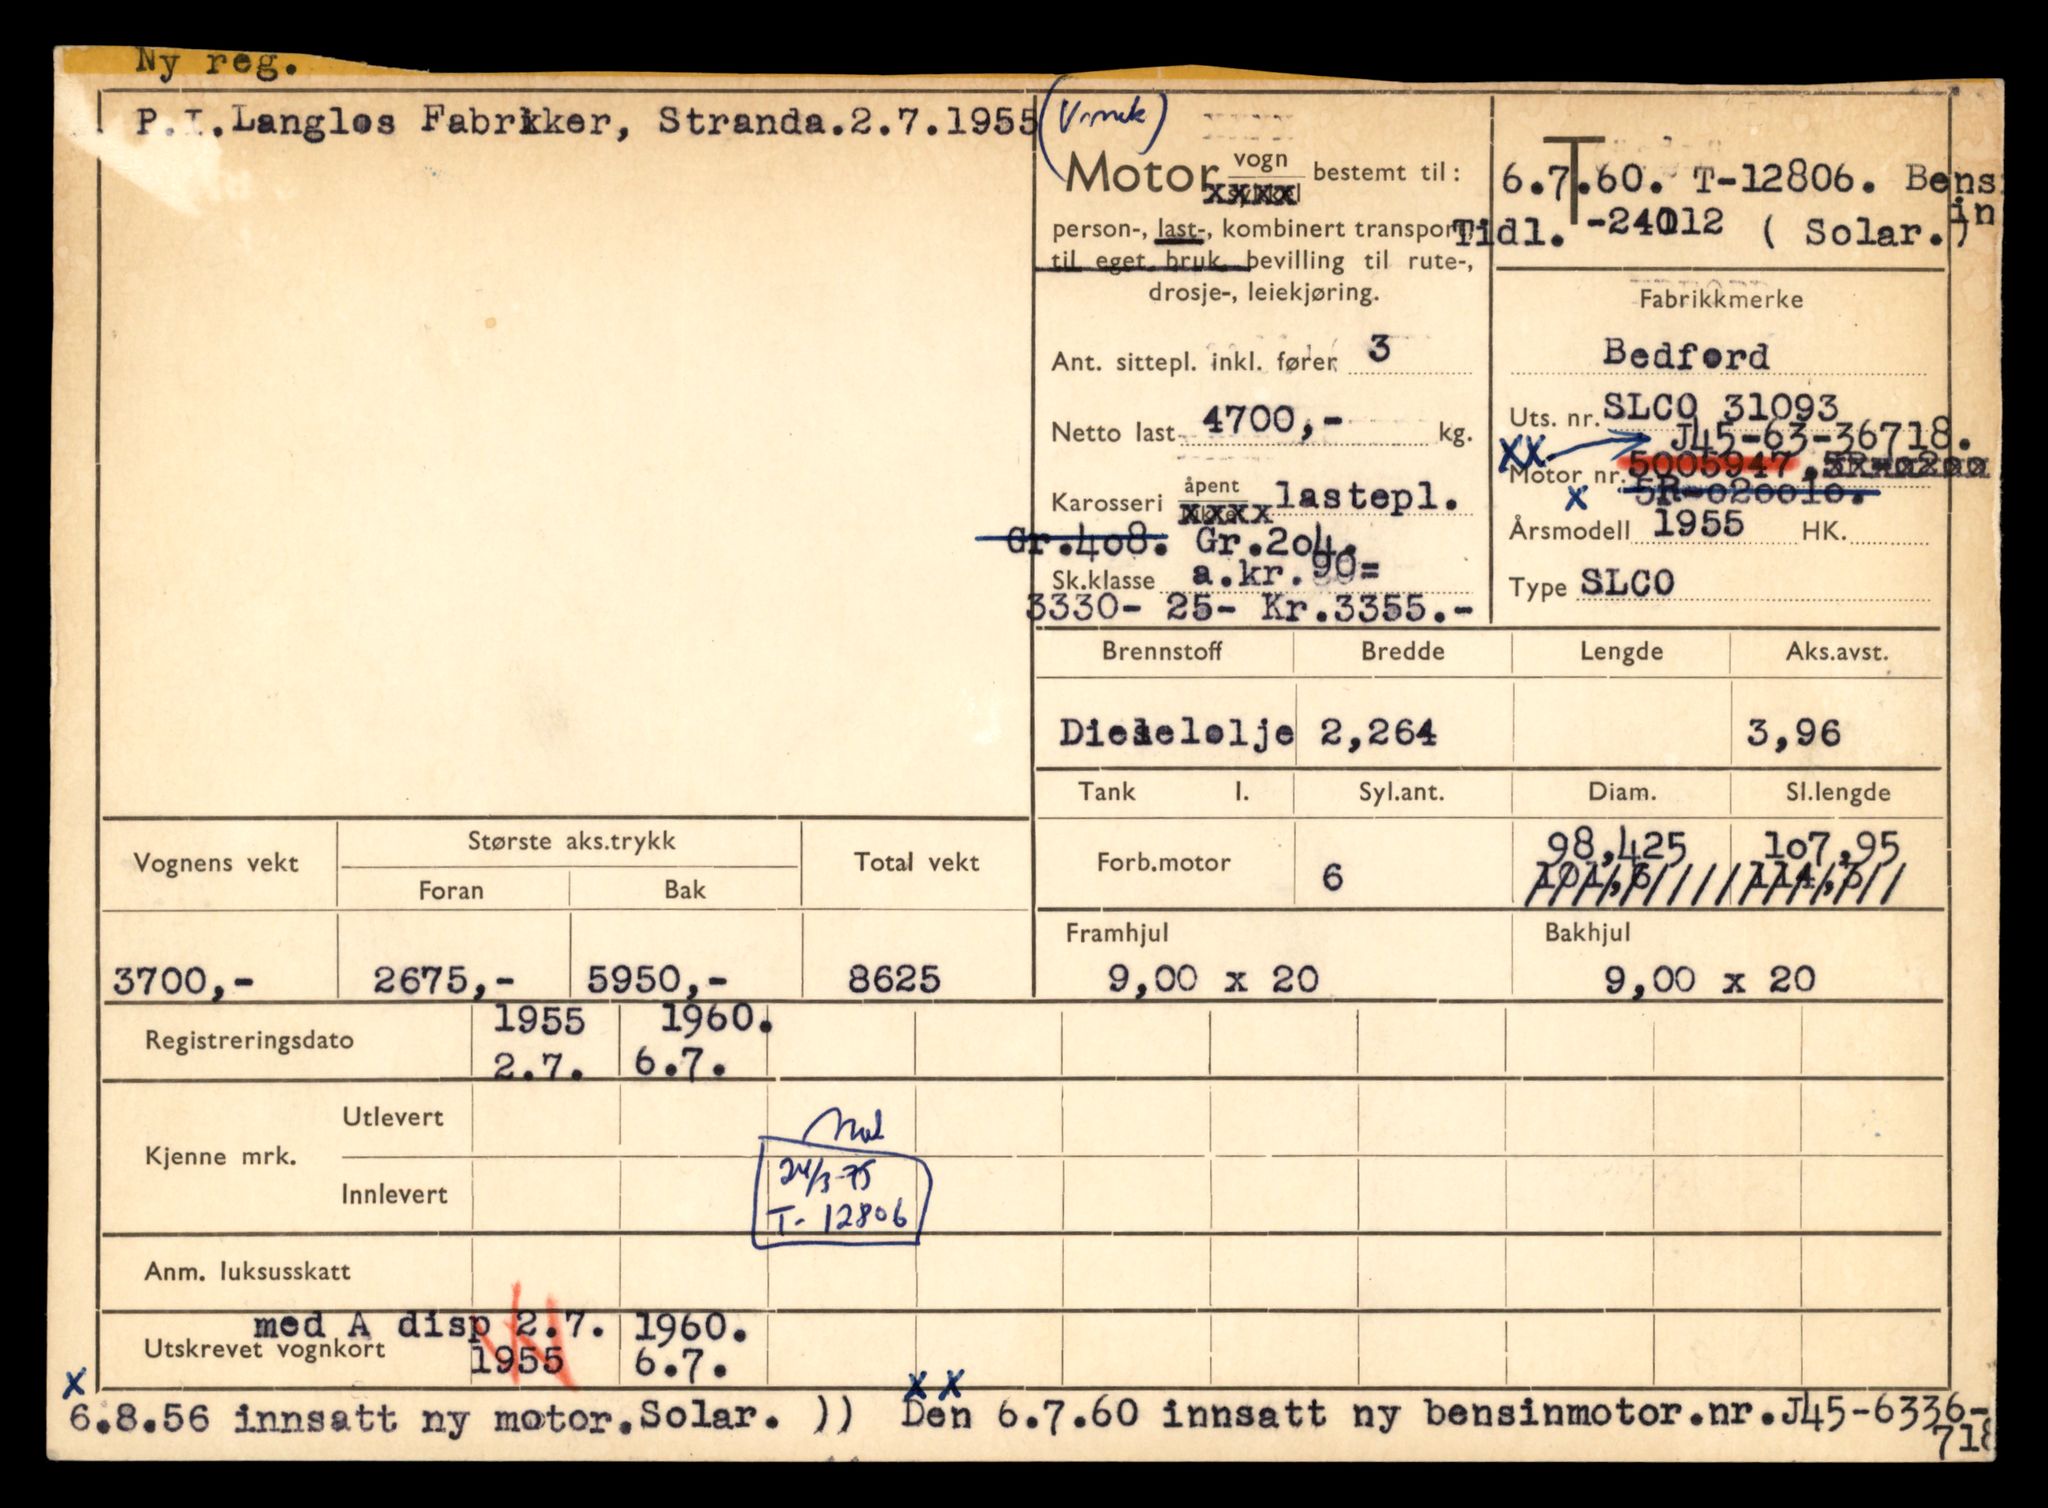 Ny reg.
P.I.Langlos Fabrikker, Stranda.2.7.1955
Motor vogn bestemt til:
person-, last-, kombinert transport,
til eget bruk, bevilling til rute-,
drosje-, leiekjøring.
Ant. sittepl. inkl. fører 3
Netto last 4700,- kg.
Karosseri åpent lastepl.
Gr.408. Gr.204.
Sk.klasse a.kr.90=
3330- 25- Kr.3355.-
T
6.7.60. T-12806. Bensin
Tidl. -24112 ( Solar.)
Fabrikkmerke
Bedford
Uts. nr. SLCO 31093
XX J45-63-36718.
Motor nr. 5005947.
x 5R-020010.
Årsmodell 1955 HK.
Type SLCO
Brennstoff Bredde Lengde Aks.avst.
Dieselolje 2,264 3,96
Tank l. Syl.ant. Diam. Sl.lengde
98,425 107,95
Forb.motor 6 101,6 114,3
Framhjul Bakhjul
9,00 x 20 9,00 x 20
Vognens vekt Største aks.trykk Total vekt
Foran Bak
3700,- 2675,- 5950,- 8625
Registreringsdato 1955 1960.
2.7. 6.7.
Kjenne mrk. Utlevert
Innlevert
24/3-75
T-12806
Anm. luksusskatt
med A disp 2.7. 1960.
Utskrevet vognkort 1955 6.7.
x xx
6.8.56 innsatt ny motor.Solar. )) Den 6.7.60 innsatt ny bensinmotor.nr.J45-6336-
718